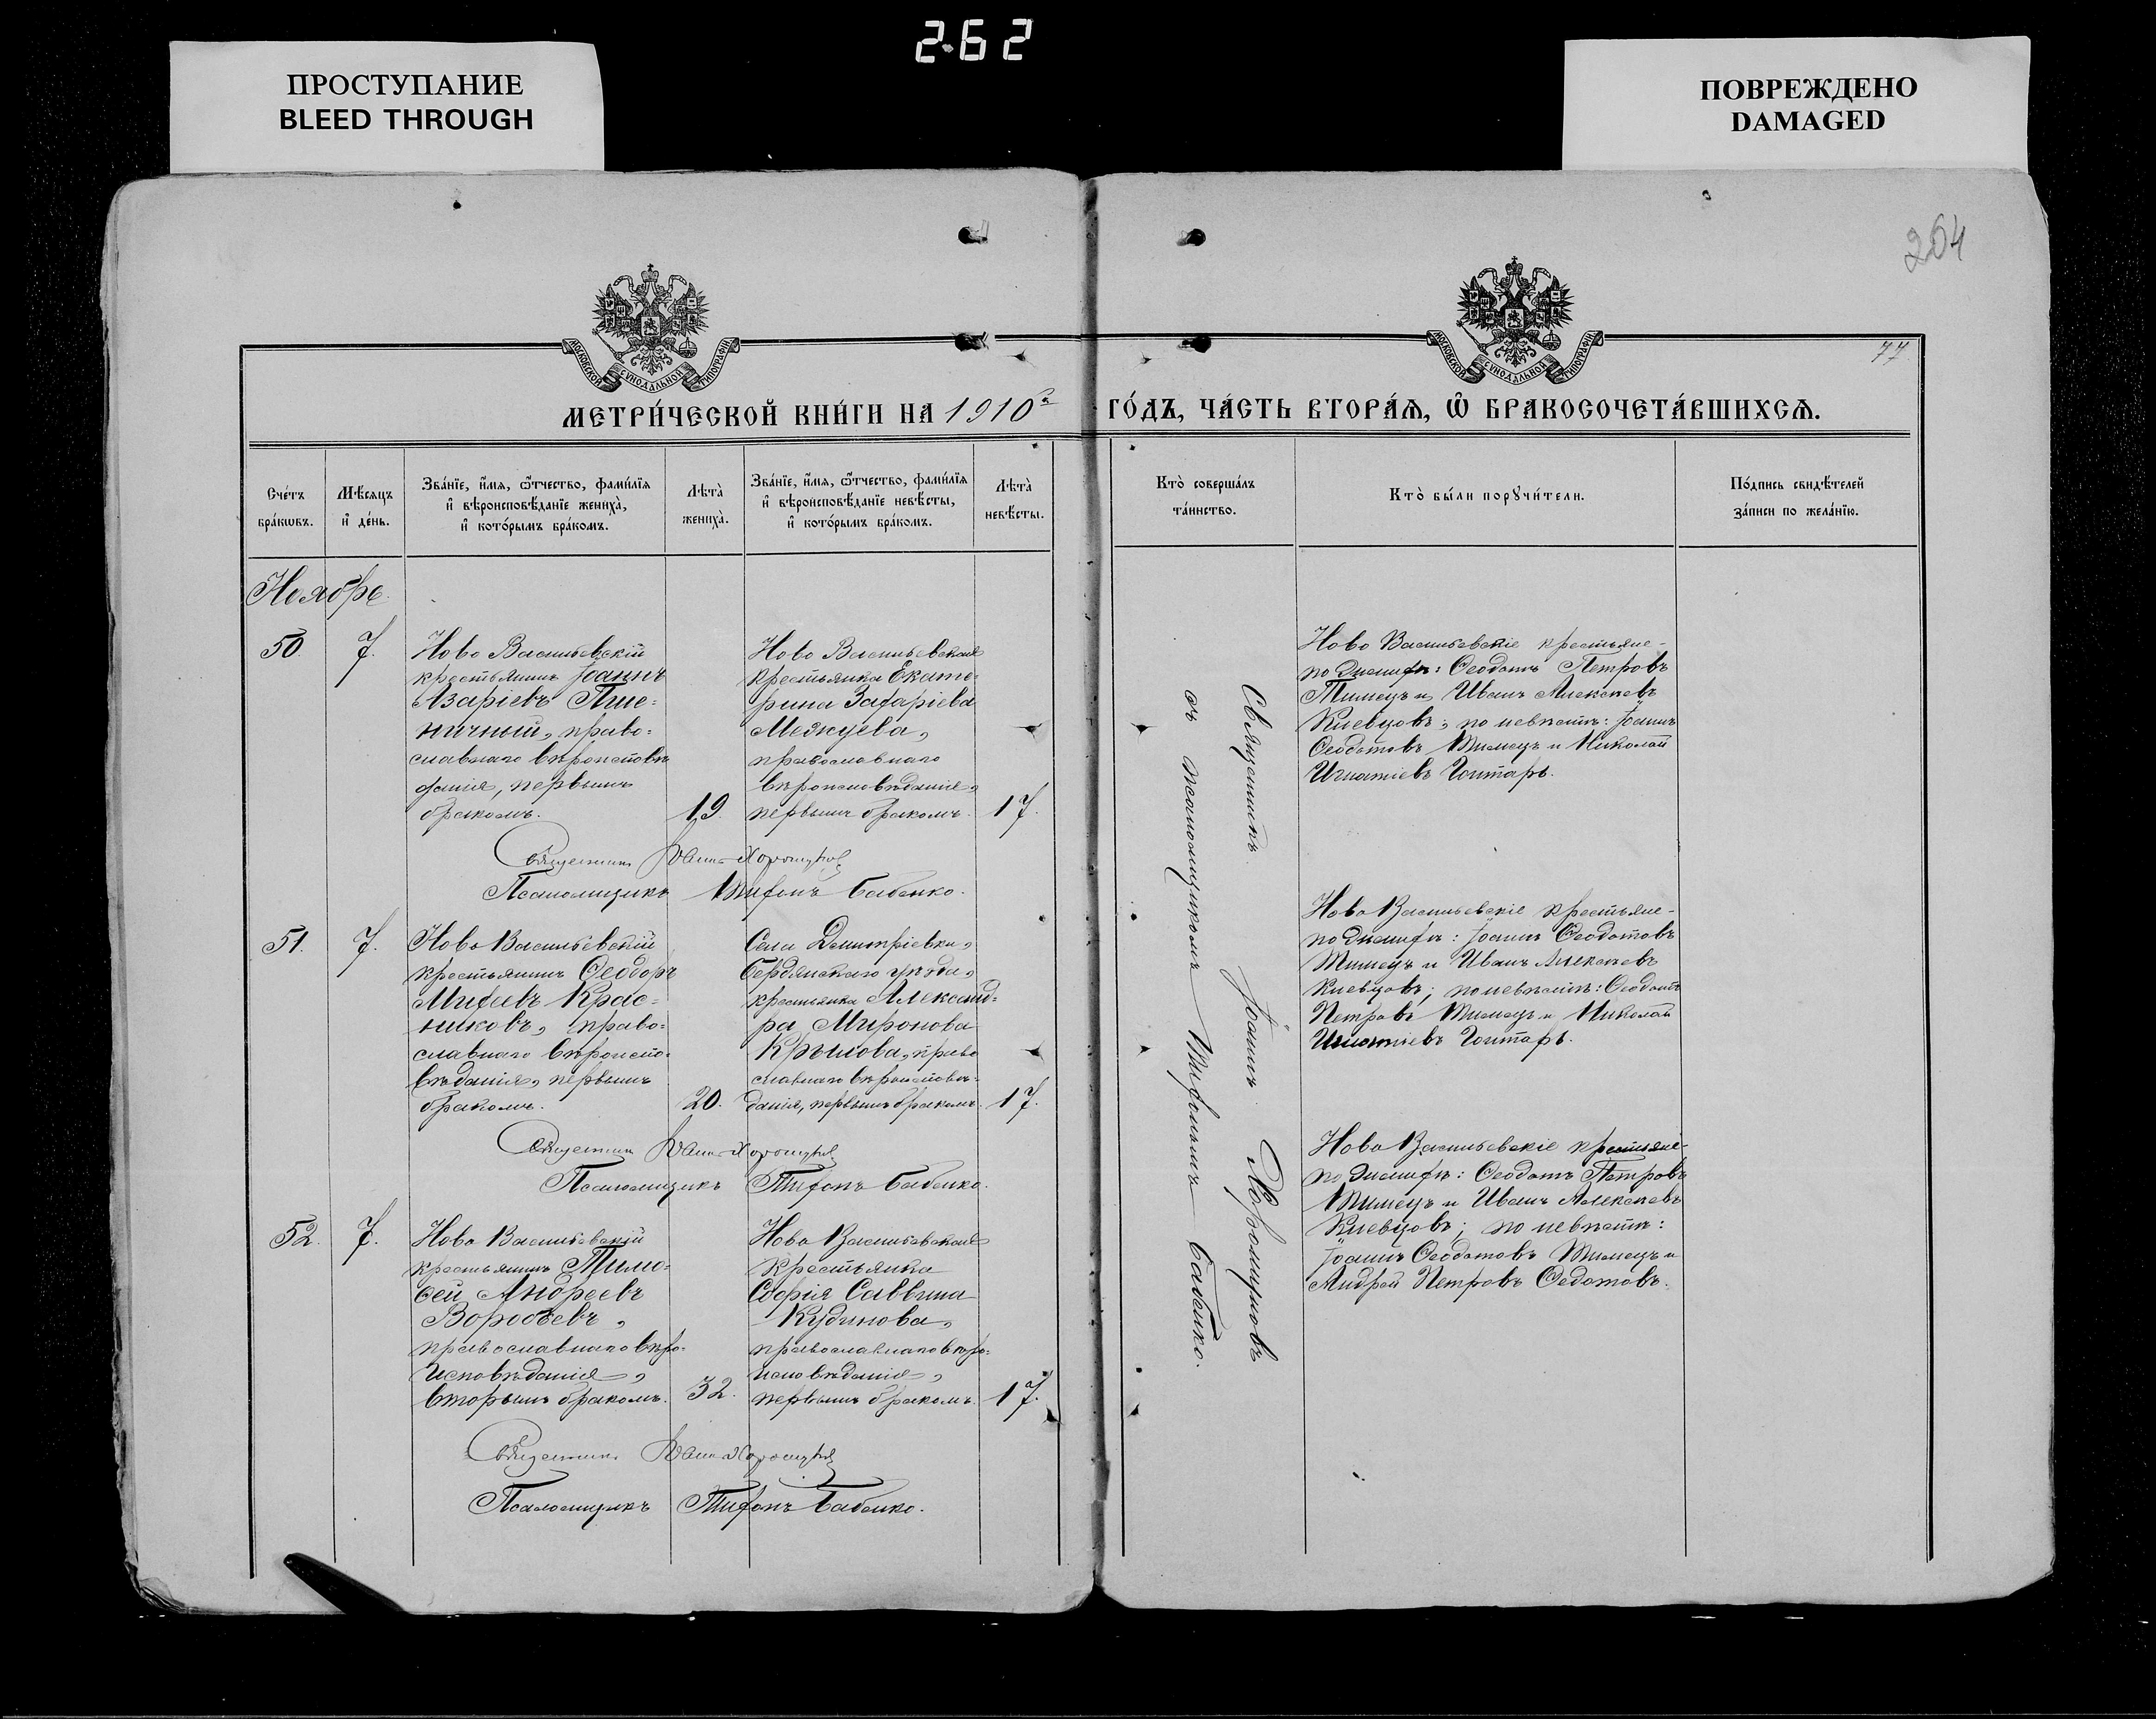 2-62
ПРОСТУПАНИЕ
BLEED THROUGH
ПОВРЕЖДЕНО
DAMAGED
264
77
МОСКОВСКОЙ СѴНОДАЛЬНОЙ ТИПОГРАФІИ
МОСКОВСКОЙ СѴНОДАЛЬНОЙ ТИПОГРАФІИ
МЕТРИ́ЧЕСКОЙ КНИ́ГИ НА 1910й
ГО́ДЪ, ЧА́СТЬ ВТОРА́Ѧ, Ѽ БРАКОСОЧЕТА́ВШИХСѦ.
Сче́тъ
бра́кѡвъ.
Мѣ́сяцъ
и҆ де́нь.
Зва́нїе, и҆́мя, ѻ҆́тчество, фами́лїя
и҆ вѣроисповѣ́данїе жениха̀,
и҆ кото́рымъ бра́комъ.
Лѣта̀
жениха̀.
Зва́нїе, и҆́мя, ѻ҆́тчество, фами́лїя
и҆ вѣроисповѣ́данїе невѣ́сты,
и҆ кото́рымъ бра́комъ.
Лѣта̀
невѣ́сты.
Кто̀ соверша́лъ
та́инство.
Кто̀ бы́ли порꙋчи́тели.
По́дпись свидѣ́телей
за́писи по жела́нїю.
Ноябрь
50.
7.
Ново Васильевскій
крестьянинъ Іоаннъ
Азаріевъ Пше=
ничный, право=
славнаго вѣроисповѣ
данія, первымъ
бракомъ.
19.
Ново Васильевская
крестьянка Екате=
рина Захаріева
Межуева,
православнаго
вѣроисповѣданія,
первымъ бракомъ.
17.
Священникъ Іоаннъ Хорошуновъ
Псаломщикъ Тихонъ Бабенко.
51.
7.
Ново Васильевскій
крестьянинъ Ѳеодоръ
Михеевъ Крас=
никовъ, право=
славнаго вѣроиспо=
вѣданія, первымъ
бракомъ.
20.
Села Димитріевки,
Бердянскаго уѣзда,
крестьянка Александ=
ра Миронова
Крылова, право
славнаго вѣроисповѣ=
данія, первымъ бракомъ.
17.
Священникъ Іоаннъ Хорошуновъ
Псаломщикъ Тихонъ Бабенко.
52.
7.
Ново Васильевскій
крестьянинъ Тимо=
ѳей Андреевъ
Воробьевъ,
православнаго вѣро=
исповѣданія,
вторымъ бракомъ.
32.
Ново Васильевская
крестьянка
Софія Саввина
Кудинова,
православнаго вѣро=
исповѣданія,
первымъ бракомъ.
17.
Священникъ Іоаннъ Хорошуновъ
Псаломщикъ Тихонъ Бабенко.
Священникъ Іоаннъ Хорошуновъ
съ псаломщикомъ Тихономъ Бабенко.
Ново Васильевскіе крестьяне-
по женихѣ: Ѳеодотъ Петровъ
Тимецъ и Иванъ Алексѣевъ
Киевцовъ; по невѣстѣ: Іоаннъ
Ѳеодотовъ Тимецъ и Николай
Игнатіевъ Гонтарь.
Ново Васильевскіе крестьяне-
по женихѣ: Іоаннъ Ѳеодотовъ
Тимецъ и Иванъ Алексѣевъ
Киевцовъ; по невѣстѣ: Ѳеодотъ
Петровъ Тимецъ и Николай
Игнатіевъ Гонтарь.
Ново Васильевскіе крестьяне-
по женихѣ: Ѳеодотъ Петровъ
Тимецъ и Иванъ Алексѣевъ
Киевцовъ; по невѣстѣ:
Іоаннъ Ѳеодотовъ Тимецъ и
Андрей Петровъ Ѳедотовъ.